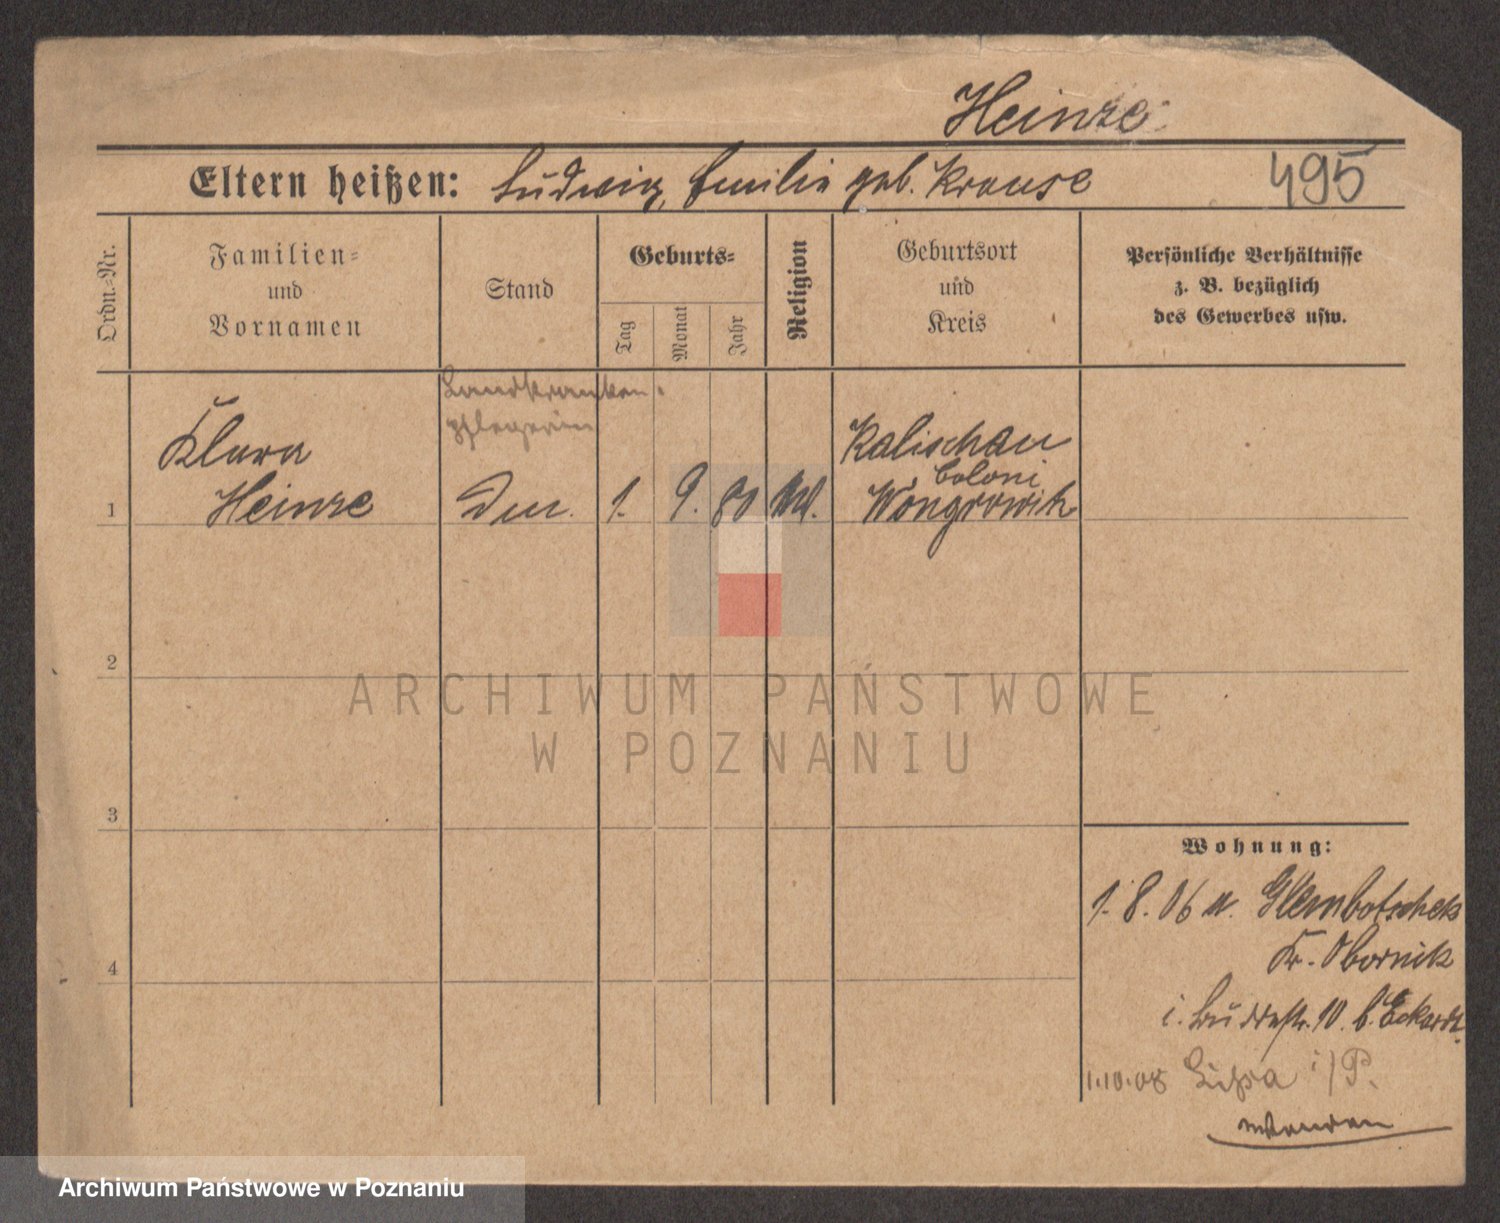 Heinze
Eltern heißen: Ludwig, Emilie geb. Krause
495
Ordn.-Nr.
Familien-
und
Vornamen
Stand
Geburts-
Tag
Monat
Jahr
Religion
Geburtsort
und
Kreis
Persönliche Verhältnisse
z. B. bezüglich
des Gewerbes usw.
Landkranken-
pflegerin
Klara
Heinze
1
1. 9. 80
Kalischau
Coloni
Wongrowitz
2
ARCHIWUM PAŃSTWOWE
W POZNANIU
3
Wohnung:
1. 8. 06 v. Glembotschek
Kr. Obornik
i. 10. b. Eckardt
4
1.10.08 Lissa i/P.
Archiwum Państwowe w Poznaniu